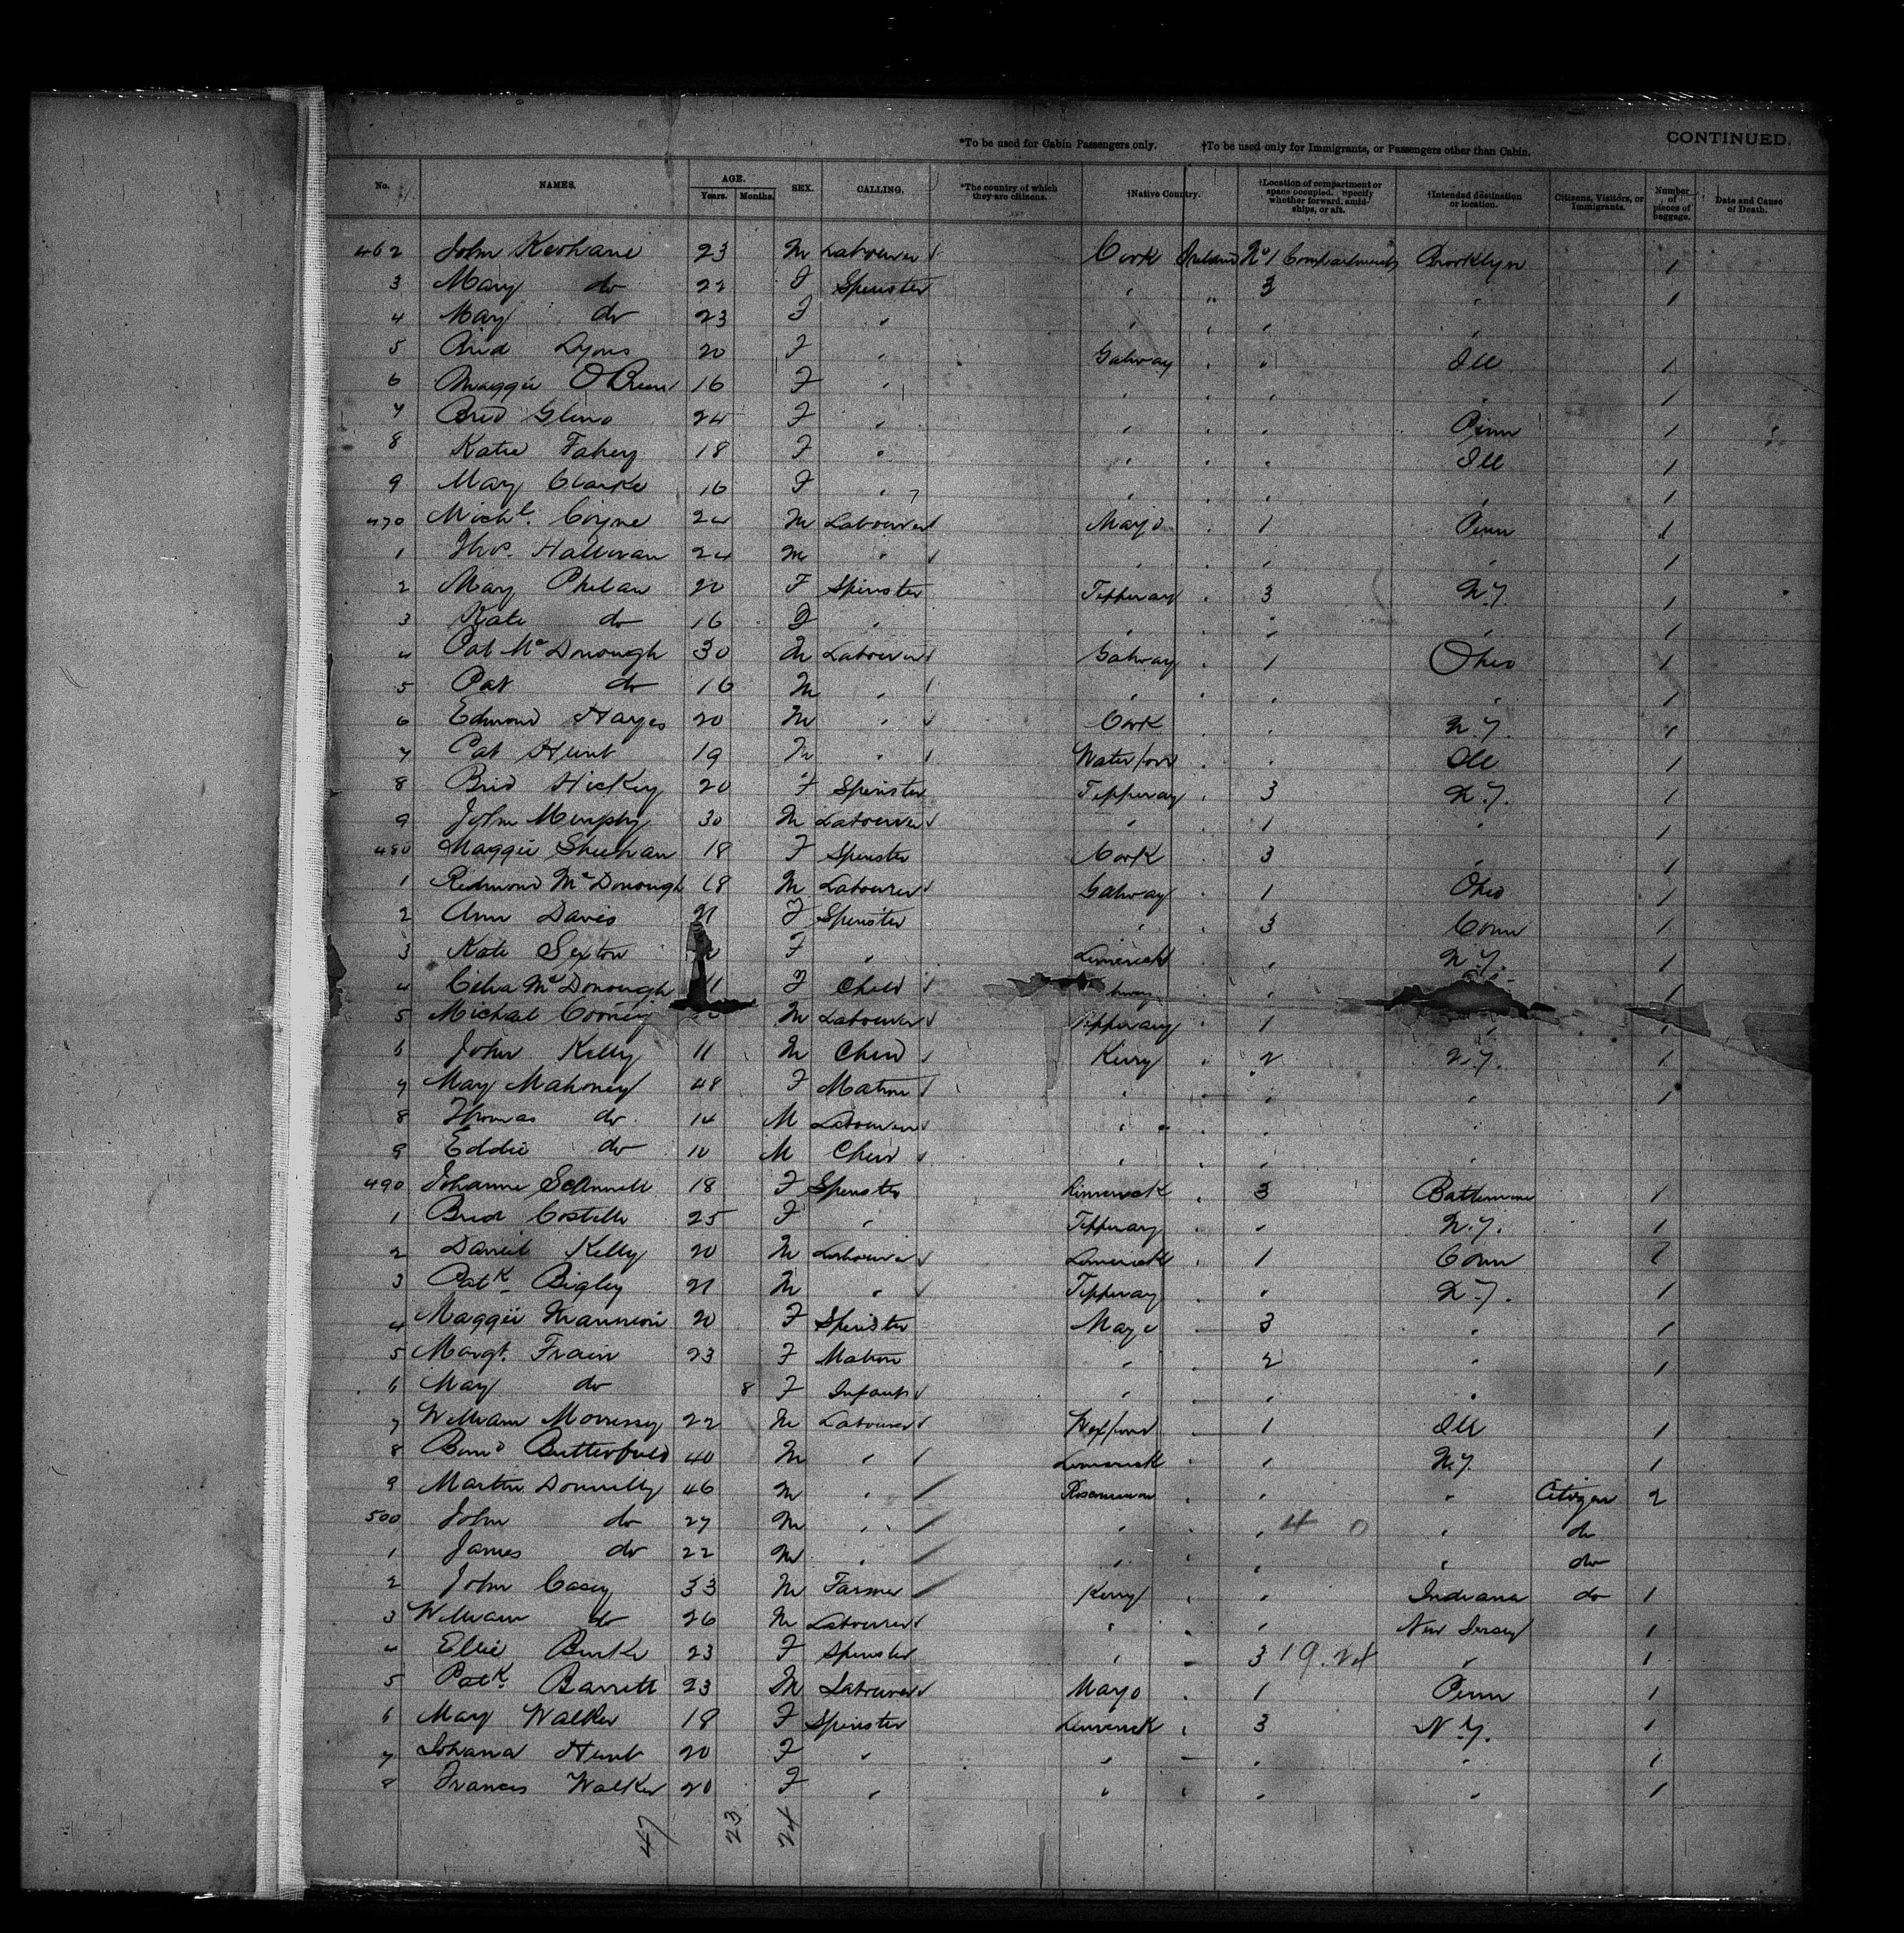 CONTINUED.
*To be used for Cabin Passengers only. †To be used only for Immigrants, or Passengers other than Cabin.
No. NAMES. AGE. Years. Months. SEX. CALLING. *The country of which they are citizens. †Native Country. †Location of compartment or space occupied. Specify whether forward, amidships, or aft. †Intended destination or location. Citizens, Visitors, or Immigrants. Number of pieces of baggage. Date and Cause of Death.
462 John Keohane 23 M Labourer Cork Ireland No 1 Compartment Brooklyn 1
3 Mary do 22 F Spinster " " 3 " 1
4 Mary do 23 F " " " " "
5 Brid Lyons 20 F " Galway " " Ill 1
6 Maggie OBrien 16 F " " " " " 1
7 Brid Glino 24 F " " " " Penn 1
8 Katie Fahey 18 F " " " " Ill 1
9 Mary Clarke 16 F " " " " " 1
470 Michl. Coyne 24 M Labourer Mayo " 1 Penn 1
1 Thos. Halloran 24 M " " " " " 1
2 Mary Phelan 20 F Spinster Tipperary " 3 N.Y. 1
3 Kate do 16 F " " " " " 1
4 Pat McDonough 30 M Labourer Galway " 1 Ohio 1
5 Pat do 16 M " " " " " 1
6 Edmond Hayes 20 M " Cork " " N.Y. 1
7 Pat Hunt 19 M " Waterford " " Ill 1
8 Brid Hickey 20 F Spinster Tipperary " 3 N.Y. 1
9 John Murphy 30 M Labourer " 1 " 1
480 Maggie Sheehan 18 F Spinster Cork " 3 " 1
1 Redmond McDonough 18 M Labourer Galway " 1 Ohio 1
2 Ann Davis 21 F Spinster " " 3 Conn 1
3 Kate Sexton F " Limerick " " N.Y. 1
4 Celia McDonough 11 F Child " " 1
5 Michael Cooney M Labourer Tipperary " 1 " 1
6 John Kelly 11 M Child Kerry " 2 N.Y. 1
7 Mary Mahoney 48 F Matron " " " " 1
8 Thomas do 14 M Labourer " " " "
9 Eddie do 10 M Child " " " "
490 Johanna Scannell 18 F Spinster Limerick " 3 Baltimore 1
1 Brid Costello 25 F " Tipperary " " N.Y. 1
2 Daniel Kelly 20 M Labourer Limerick " 1 Conn 2
3 Patk. Bigley 21 M " Tipperary " " N.Y. 1
4 Maggie Mannion 20 F Spinster Mayo " 3 " 1
5 Margt. Frain 23 F Matron " " 2 " 1
6 Mary do 8 F Infant " " " "
7 William Morrissey 22 M Labourer Wexford " 1 Ill 1
8 Butterfield 40 M " Limerick " " N.Y. 1
9 Martin Donnelly 46 M " Roscommon " " " Citizen 2
500 John do 27 M " " " " 4 0 " do
1 James do 22 M " " " " " do
2 John Casey 33 M Farmer Kerry " " Indiana do 1
3 William do 26 M Labourer " " " New Jersey 1
4 Ellie Burke 23 F Spinster " " 3 " 1
5 Patk. Barrett 23 M Labourer Mayo " 1 Penn 1
6 Mary Walker 18 F Spinster Limerick " 3 N.Y. 1
7 Johana Hunt 20 F " " " " " 1
8 Frances Walker 20 F " " " " " 1
47 23 24